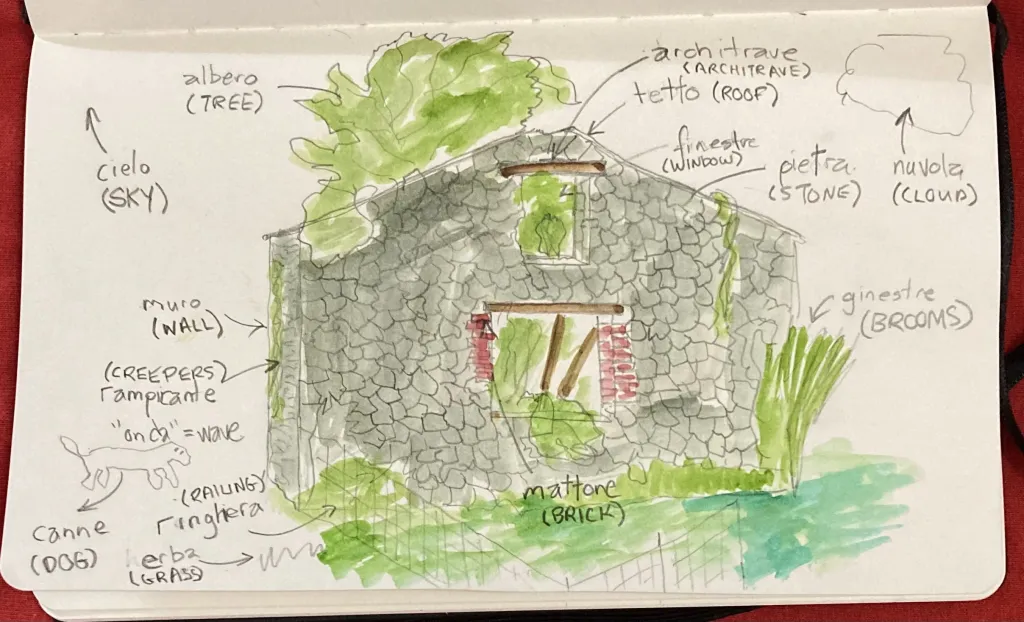 albero
(TREE)
architrave
(ARCHITRAVE)
tetto (ROOF)
cielo
(SKY)
finestre
(WINDOW)
pietra
(STONE)
nuvola
(CLOUD)
muro
(WALL)
ginestre
(BROOMS)
(CREEPERS)
rampirante
"onda" = wave
(RAILING)
ringhera
mattone
(BRICK)
canne
(DOG)
erba
(GRASS)